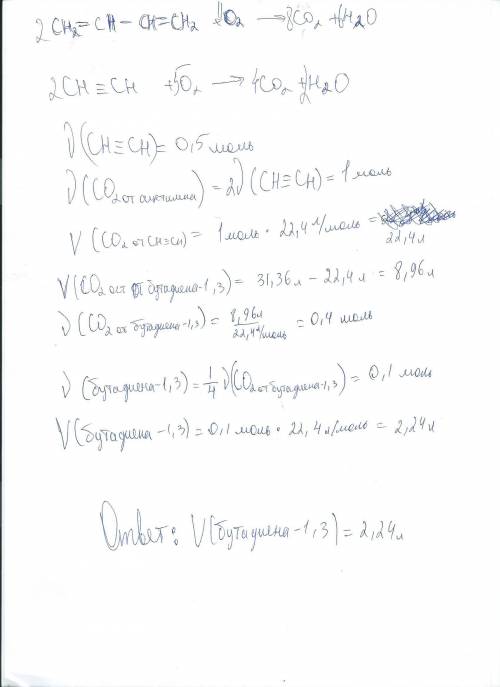 2CH₂=CH-CH=CH₂ 11O₂ → 8CO₂ + 6H₂O
2CH≡CH +5O₂ → 4CO₂ + 2H₂O
ν(CH≡CH)= 0,5 моль
ν(CO₂ от ацетилена) = 2ν(CH≡CH) = 1 моль
V (CO₂ от CH≡CH) = 1 моль · 22,4 л/моль = 22,4 л
V(CO₂ от бутадиена-1,3) = 31,36 л - 22,4 л = 8,96 л
ν(CO₂ от бутадиена-1,3) = 8,96л / 22,4 л/моль = 0,4 моль
ν (бутадиена-1,3) = 1/4 ν(CO₂ от бутадиена-1,3) = 0,1 моль
V(бутадиена-1,3) = 0,1 моль · 22,4 л/моль = 2,24 л
Ответ: V(бутадиена-1,3) = 2,24 л